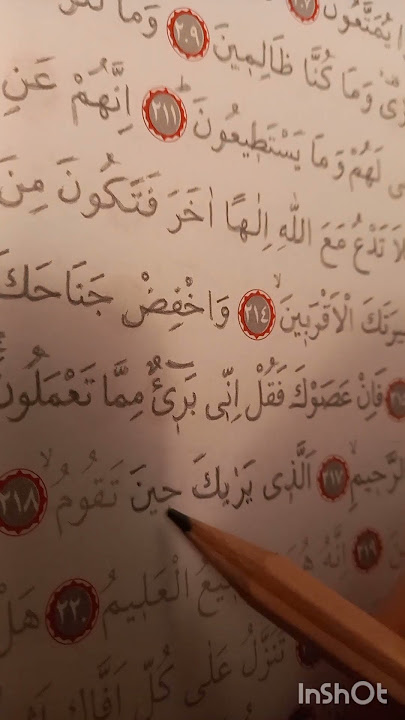 يُمَتَّعُونَ ٢٠٧
ظَالِمِينَ ٢٠٩ وَمَا
وَمَا كُنَّا
لَهُمْ وَمَا يَسْتَطِيعُونَ ٢١١ اِنَّهُمْ عَنِ
تَدْعُ مَعَ اللّٰهِ اِلٰهًا اٰخَرَ فَتَكُونَ مِنَ
الْاَقْرَبِينَ ٢١٤ وَاخْفِضْ جَنَاحَكَ
فَاِنْ عَصَوْكَ فَقُلْ اِنِّى بَرِٓىءٌ مِمَّا تَعْمَلُونَ
الرَّحِيمِ ٢١٧ اَلَّذِى يَرٰيكَ حِينَ تَقُومُ ٢١٨
٢١٩ اِنَّهُ الْعَلِيمُ ٢٢٠ هَلْ
تَنَزَّلُ عَلٰى كُلِّ اَفَّاكٍ
InShOt